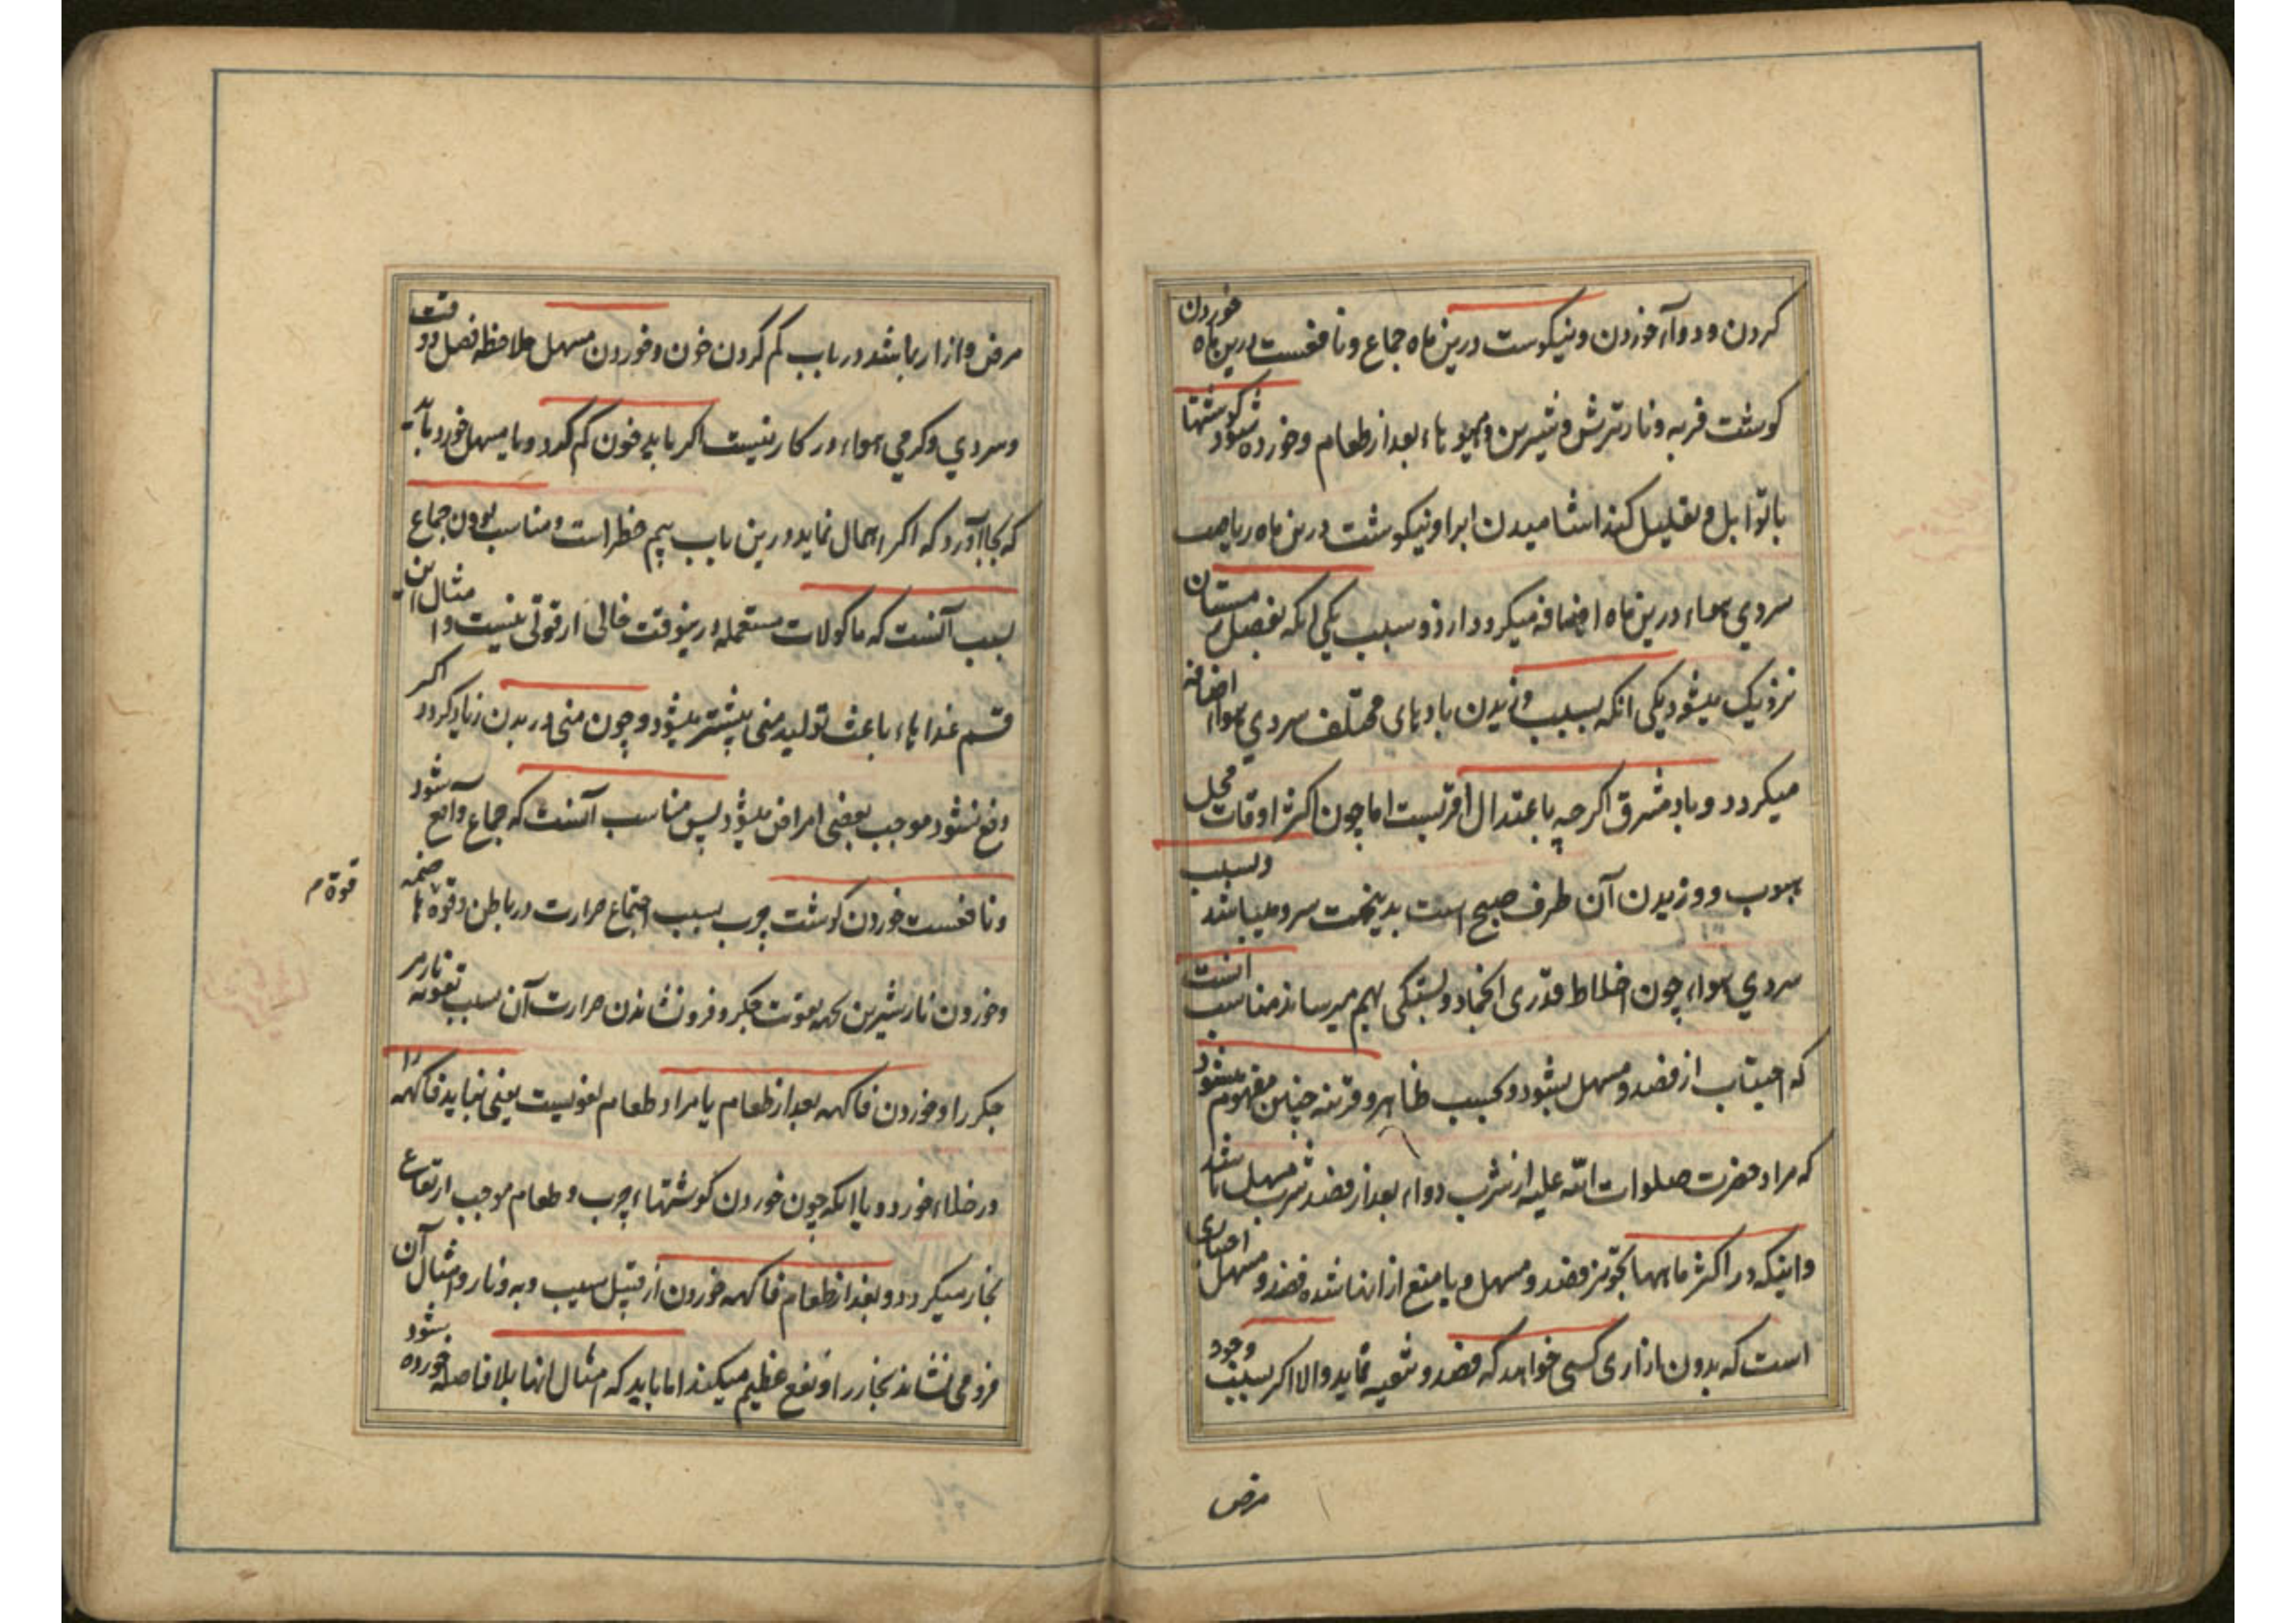 كردن و دوآء خوردن و نيكوست درين ماه جماع و نافعست درين ماه خوردن
كوشت فربه و نار ترش و شيرين و ميوه‌ها بعد از طعام و خورده شود كوشتها
با توابل و تقليل كند اشاميدن اب را و نيكوست درين ماه رياضت
سردي هواء درين ماه اضافه ميكردد از دو سبب يكي انكه بفصل زمستان
نزديك ميشود يكي انكه بسبب وزيدن بادهاى مختلف سردي هواء اضافه
ميكردد و باد مشرق اكرچه باعتدال اقربست اما چون اكثر اوقات محل
هبوب و وزيدن آن طرف صبح است بدينجهت سرد ميباشد و بسبب
سردي هواء چون اخلاط قدرى انجماد و بستكى بهم ميرساند مناسب انست
كه اجتناب از فصد و مسهل بشود و بحسب ظاهر و قرينه چنين مفهوم ميشود
كه مراد حضرت صلوات الله عليه از شرب دواء بعد از فصد شرب مسهل باشد
و اينكه در اكثر ماهها تجويز فصد و مسهل و يا منع از انها شده فصد و مسهل اختيارى
است كه بدون ازارى كسى خواهد كه فصد و تنقيه نمايد و الا اكر بسبب وجود
مرض
مرض و ازار باشد در باب كم كردن خون و خوردن مسهل ملاحظه فصل و وقت
و سردي و كرمي هواء در كار نيست اكر بايد خون كم كرد و يا مسهل خورد بايد
كه بجا آورد كه اكر اهمال نمايد درين باب بيم خطر است و مناسب بودن جماع
بسبب آنست كه ماكولات مستعمله درينوقت خالى از قوتى نيست و امثال اين
قسم غذاهاء باعث توليد منى بيشتر ميشود و چون منى در بدن زياد كردد اكر
دفع نشود موجب بعضى امراض ميشود پس مناسب آنست كه جماع واقع شود
و نافعست خوردن كوشت چرب بسبب اجتماع حرارت در باطن و قوة هاضمه
قوة م
و خوردن نار شيرين بجهه تقوت جكر و فرونشاندن حرارت آن بسبب تقويه نار مر
جكر را و خوردن فاكهه بعد از طعام يا مراد طعام لغويست يعنى نبايد فاكهه را
در خلاء خورد و يا انكه چون خوردن كوشتهاء چرب و طعام موجب ارتفاع
بخار ميكردد و بعد از طعام فاكهه خوردن از قبيل سيب و به و نار و امثال آن
فرو مى نشاند بخار را و نفع عظيم ميكند اما بايد كه امثال انها بلا فاصله خورده بشود